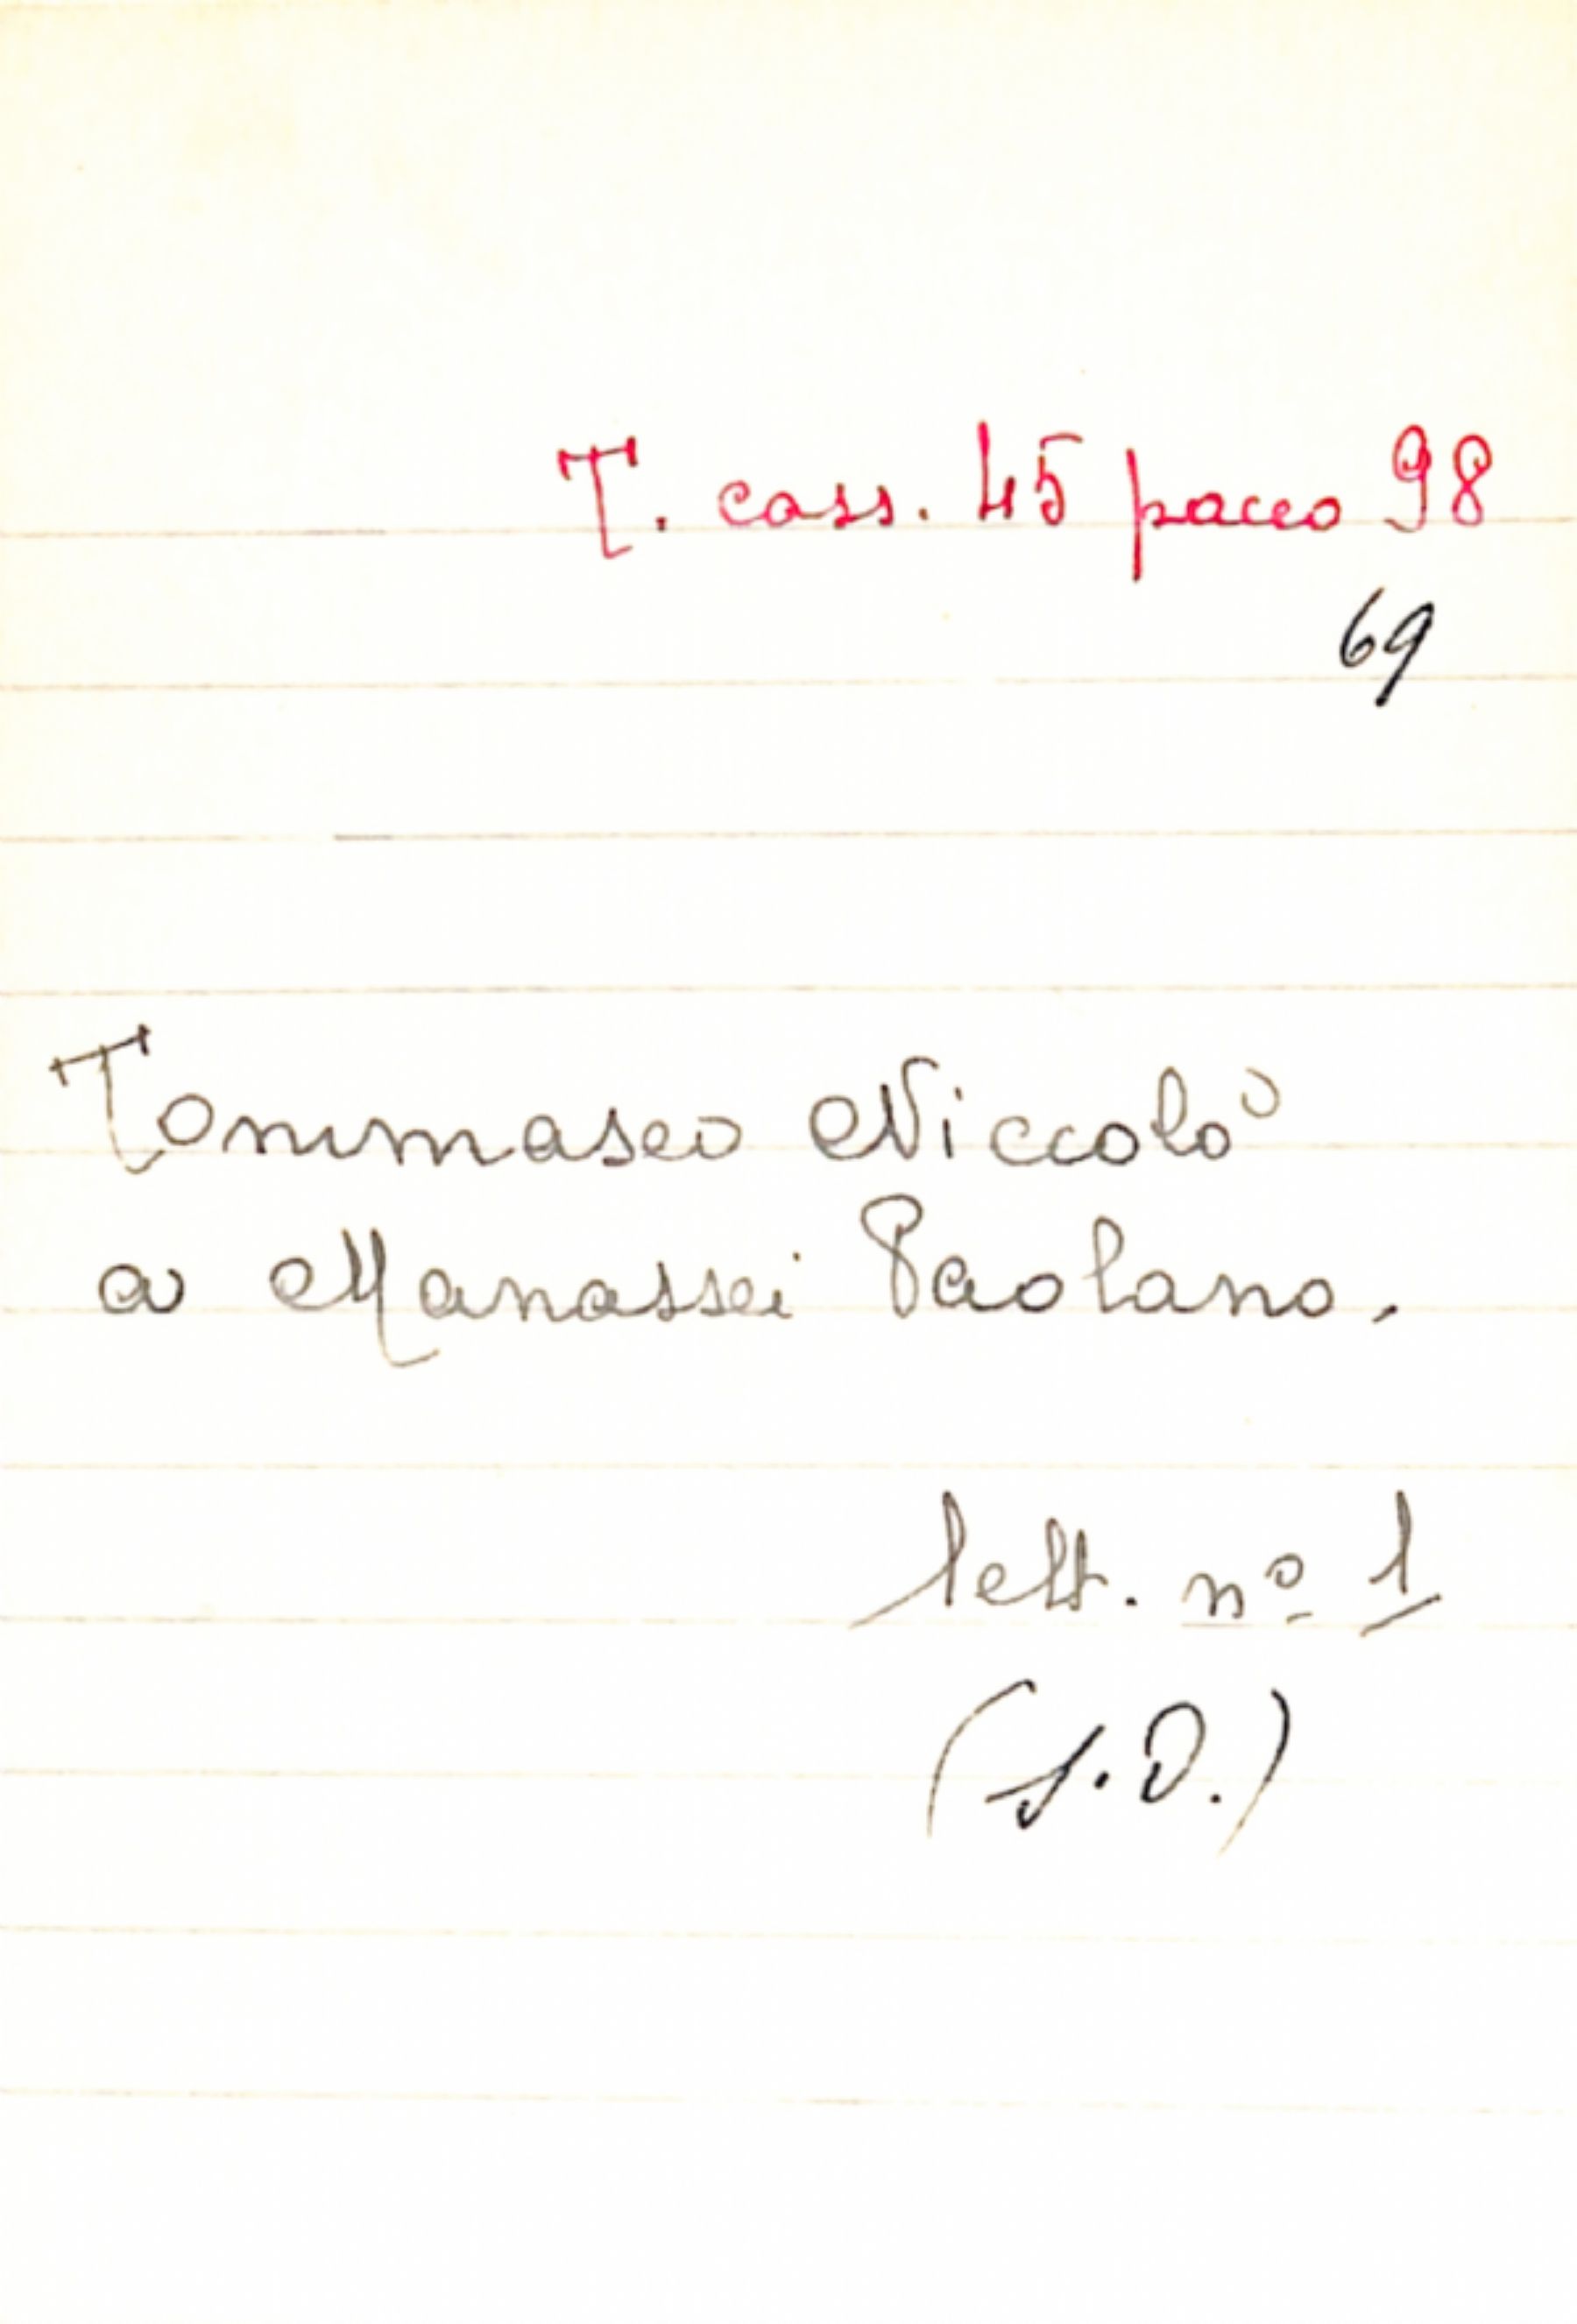 T. cass. 45 pacco 98
69
Tommaseo Niccolò
a Manassei Paolano.
lett. nº 1
(s.D.)